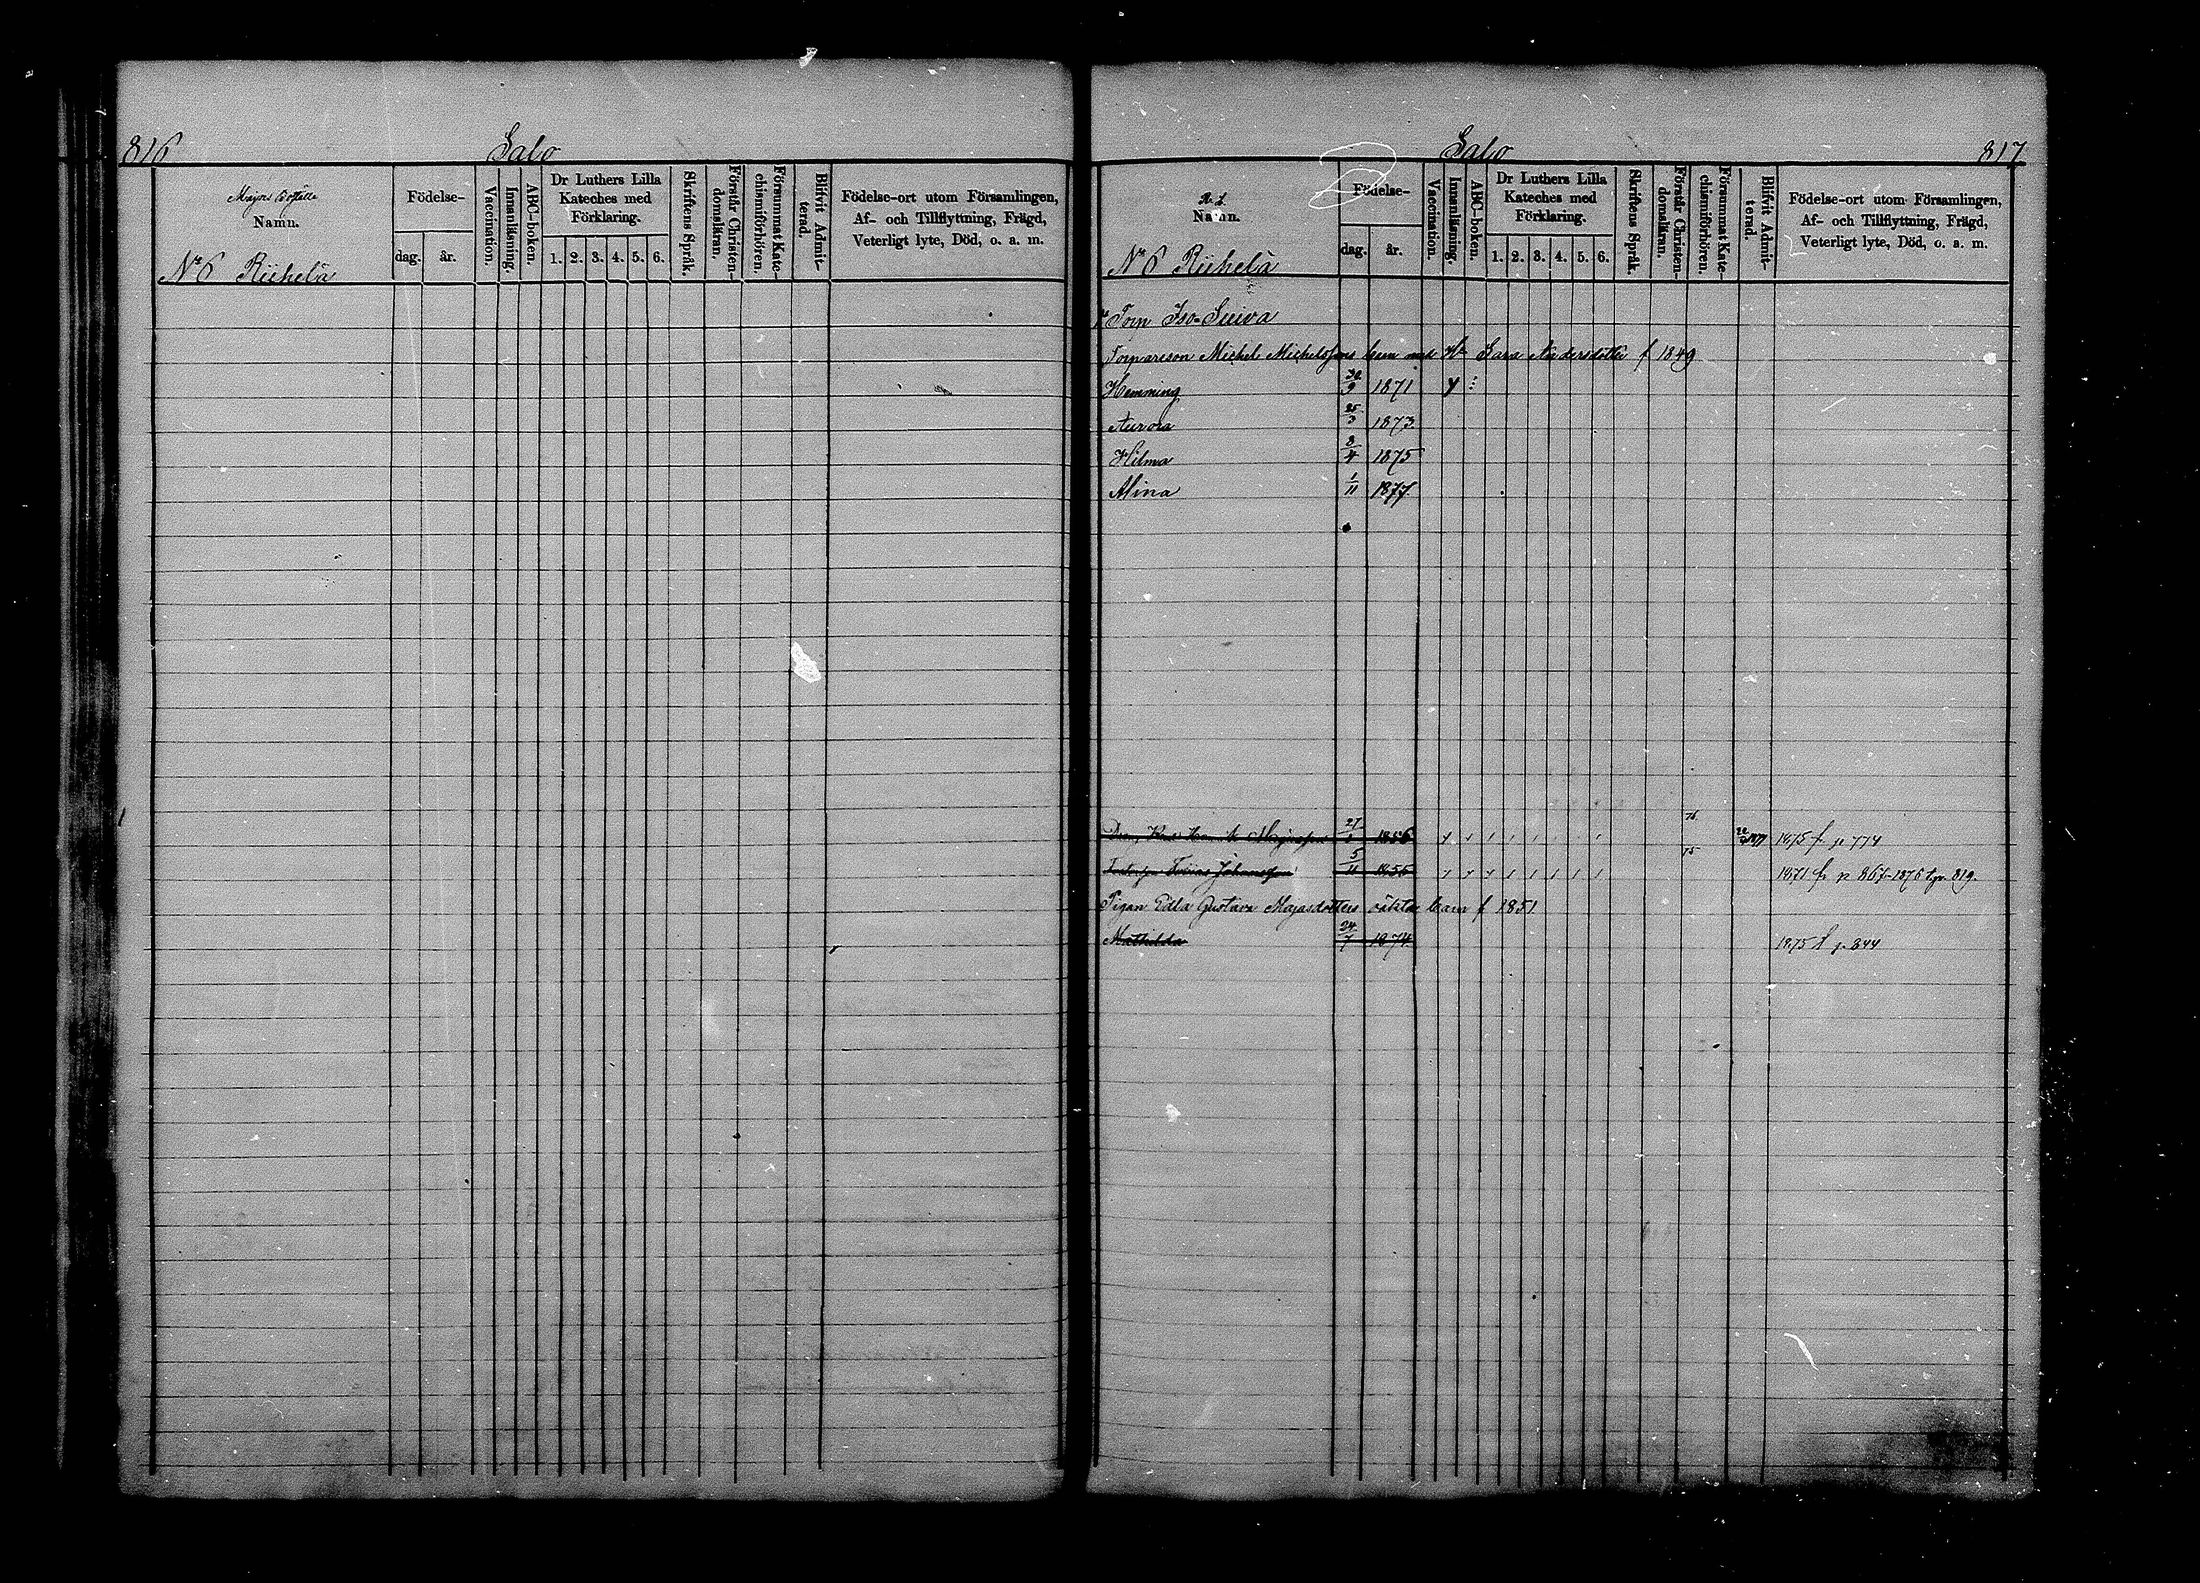 816
Salo
Majors Boställe
Namn.
Födelse-
dag.
år.
Vaccination.
Innanläsning.
ABC-boken.
Dr Luthers Lilla
Kateches med
Förklaring.
1. 2. 3. 4. 5. 6.
Skriftens Språk.
Förstår Christen-
domsläran.
Försummat Kate-
chismiförhören.
Blifvit Admit-
terad.
Födelse-ort utom Församlingen,
Af- och Tillflyttning, Frägd,
Veterligt lyte, Död, o. a. m.
No 6 Riihelä
Salo
817
Namn.
Födelse-
dag.
år.
Vaccination.
Innanläsning.
ABC-boken.
Dr Luthers Lilla
Kateches med
Förklaring.
1. 2. 3. 4. 5. 6.
Skriftens Språk.
Förstår Christen-
domsläran.
Försummat Kate-
chismiförhören.
Blifvit Admit-
terad.
Födelse-ort utom Församlingen,
Af- och Tillflyttning, Frägd,
Veterligt lyte, Död, o. a. m.
No 6 Riihelä
Torp Iso-Suiva
Torparson Michel Michelssons barn med Sara Andersdotter f 1849
Hemming 9 1871
Aurora 25/3 1873
Hilma 8/4 1875
Alina 1/11 1877
27 1856 76 1875 f. p 774
Johansson 5/11 1855 75 1871 fr p 867 1876 t. p. 819.
Pigan Edla Gustava Majasdotters oäkta barn f 1851
Mathilda 24/7 1874 1875 t p. 844